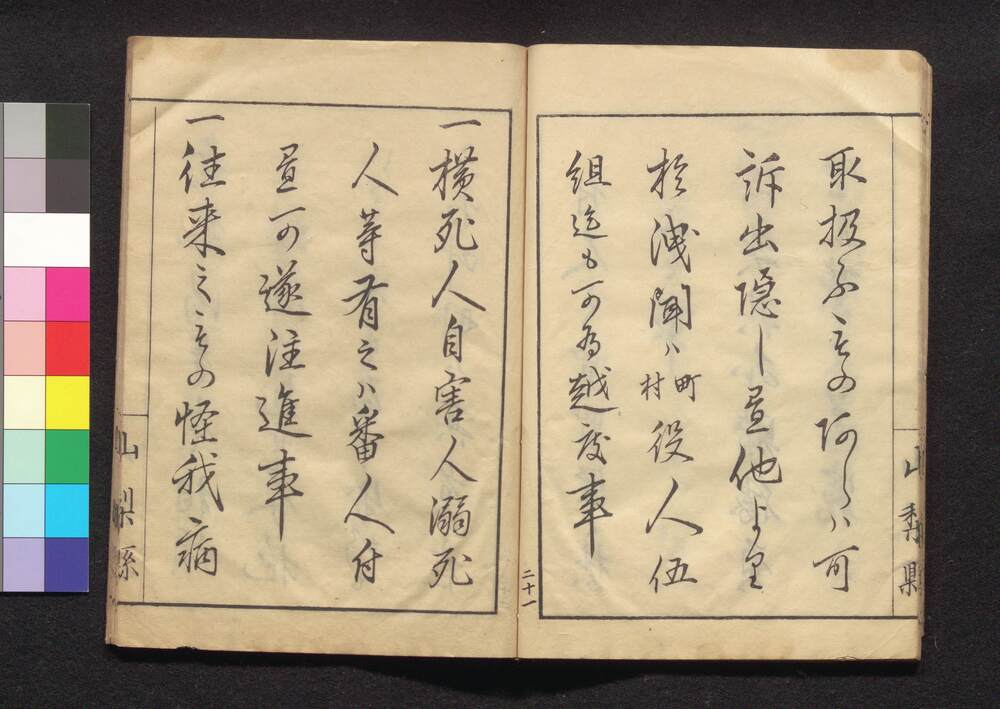 取扱ふものあらハ可
訴出隠し置他より
於洩聞ハ町村役人伍
組迄も可為越度事
山梨縣
二十一
一横死人自害人溺死
人等有之ハ番人付
置可遂注進事
一往来之もの怪我病
山梨縣